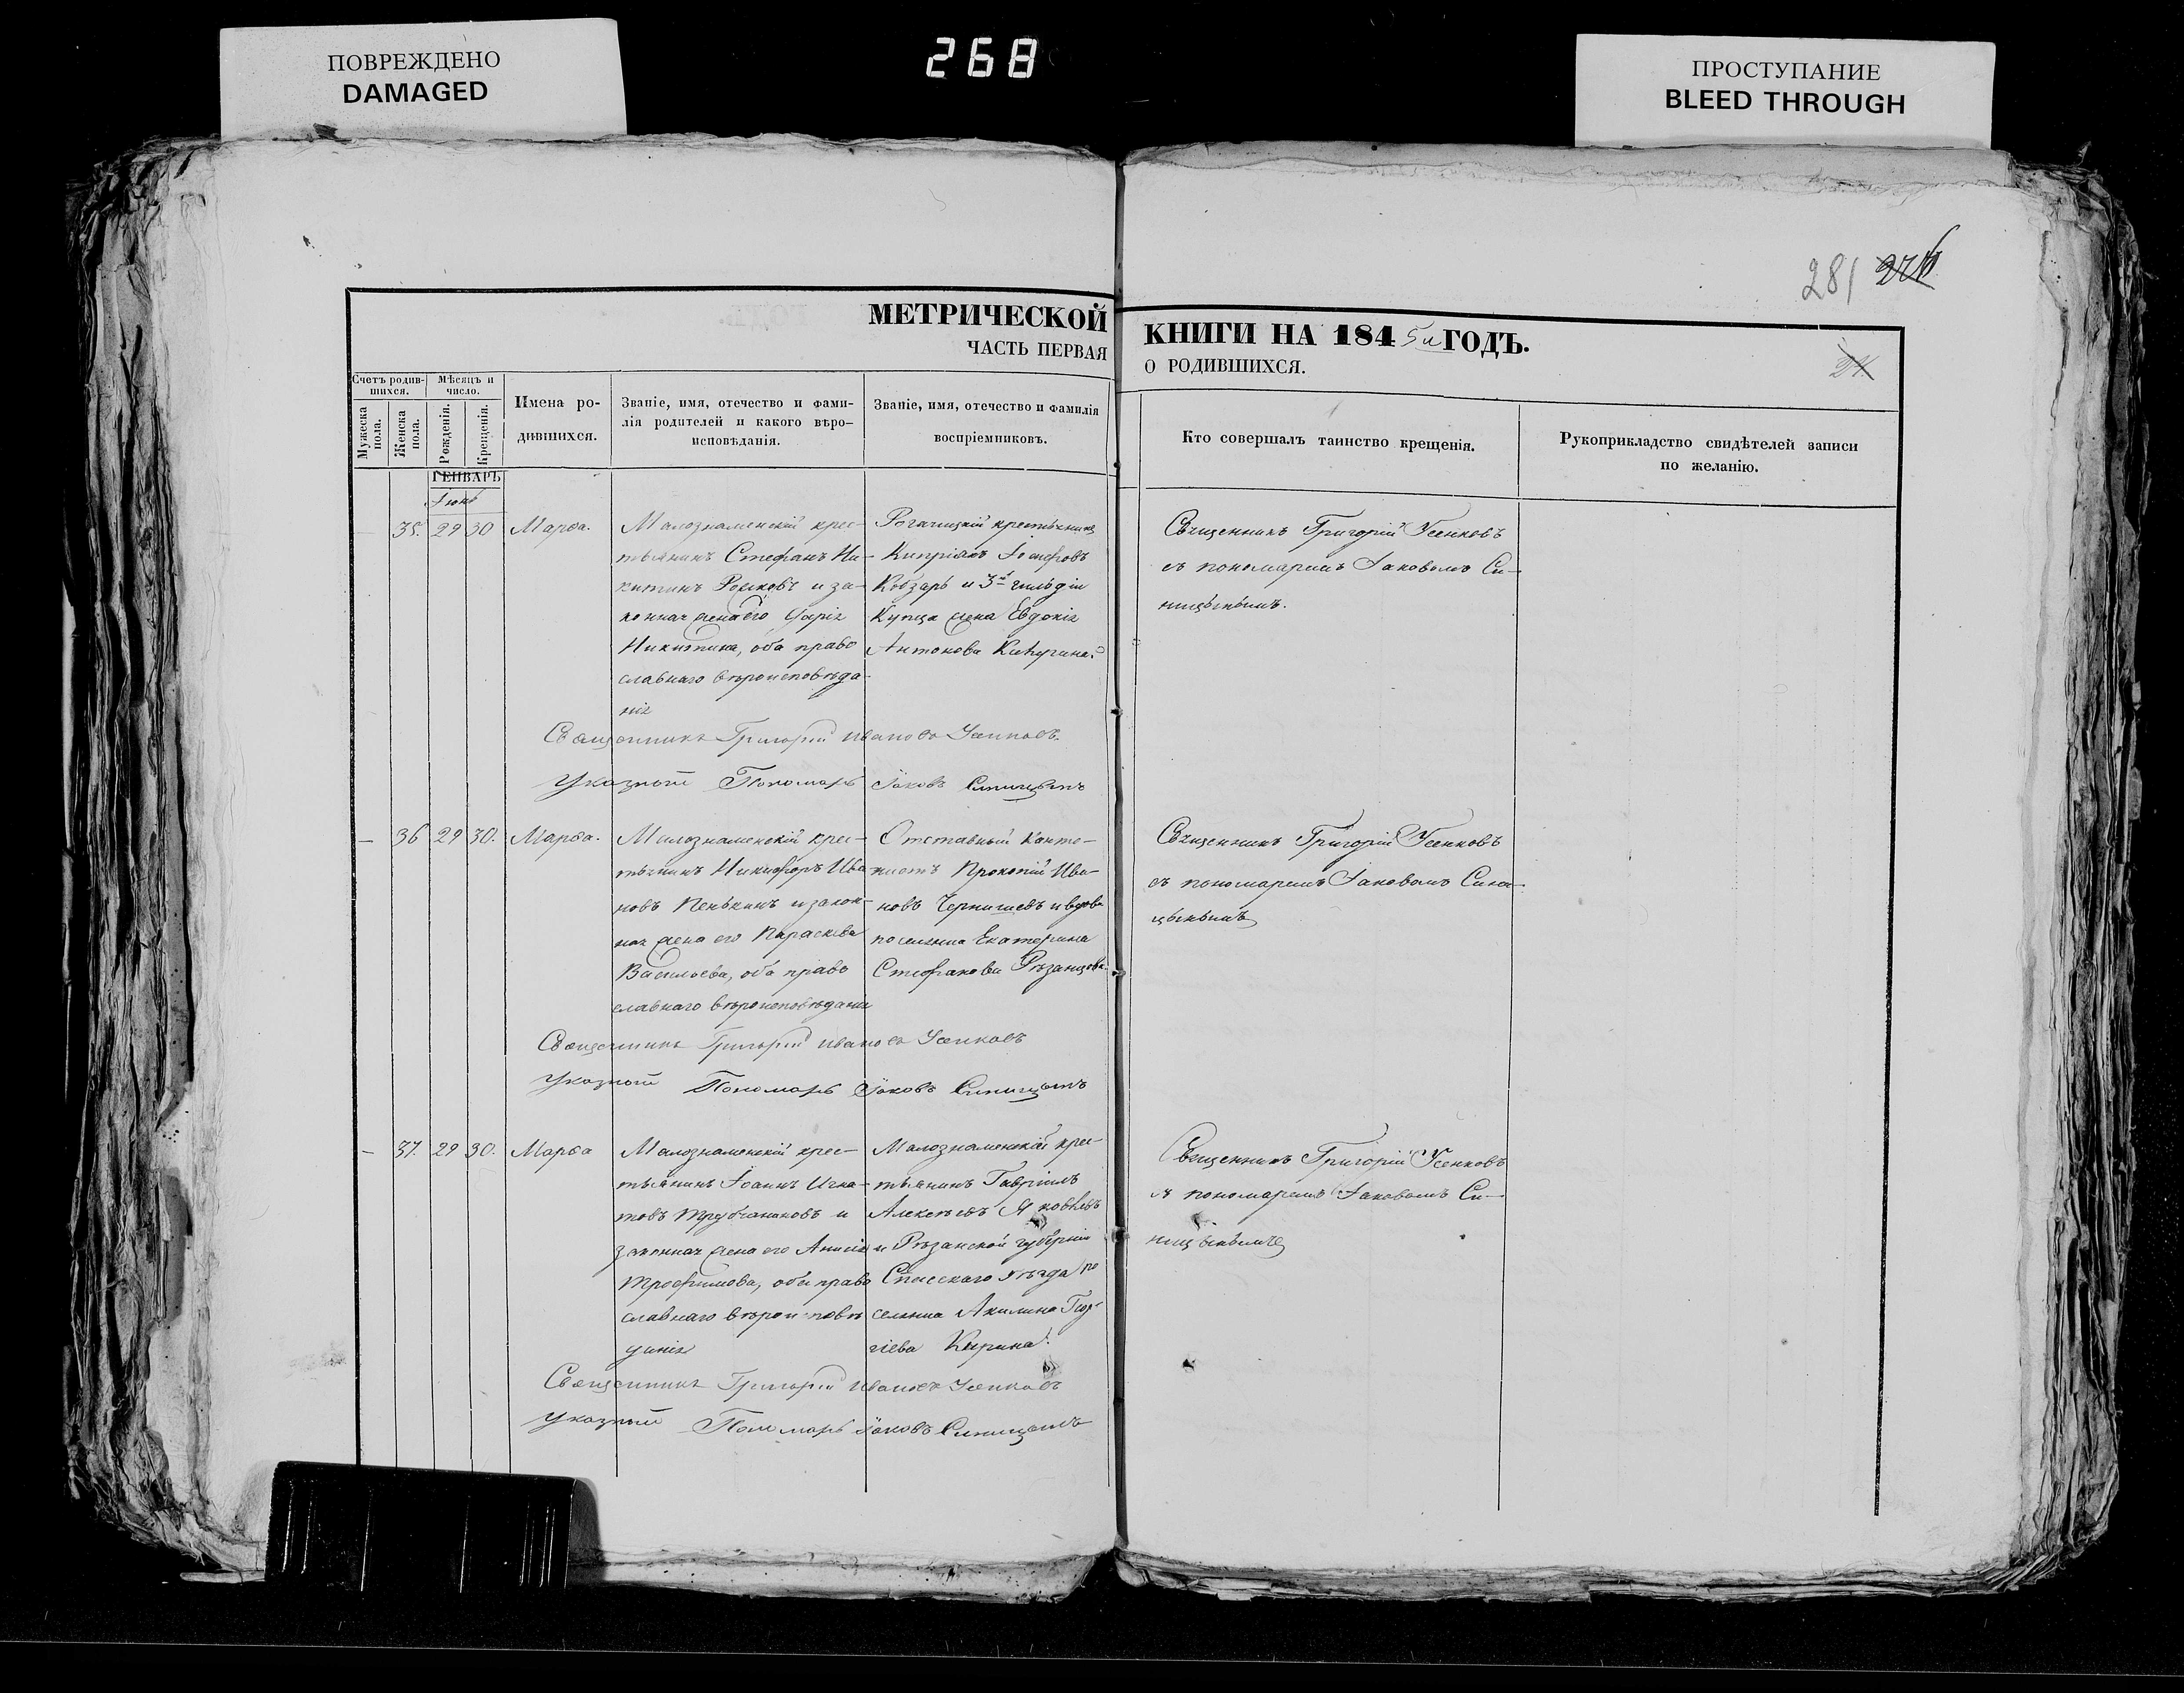 ПОВРЕЖДЕНО
DAMAGED
268
ПРОСТУПАНИЕ
BLEED THROUGH
281
МЕТРИЧЕСКОЙ
ЧАСТЬ ПЕРВАЯ
КНИГИ НА 1845й ГОДЪ.
О РОДИВШИХСЯ.
Счетъ родив-
шихся.
Мѣсяцъ и
число.
Мужеска
пола.
Женска
пола.
Рожденія.
Крещенія.
Имена ро-
дившихся.
Званіе, имя, отечество и фами-
лія родителей и какого вѣро-
исповѣданія.
Званіе, имя, отечество и фамилія
воспріемниковъ.
Кто совершалъ таинство крещенія.
Рукоприкладство свидѣтелей записи
по желанію.
ГЕНВАРЬ
Іюнь
35. 29 30 Марѳа.
Малознаменскій крес-
тьянинъ Стефанъ Ни-
китинъ и за-
конная жена его
Никитина, оба право
славнаго вѣроисповѣда-
нія
Рогачицкій крестьянинъ
Кипріанъ Іосифовъ
Кобзарь и 3й гильдіи
Купца жена Евдокія
Антонова
Священникъ Григорій Усенковъ
съ пономаремъ Іаковомъ Си-
ницынымъ.
Священникъ Григорій Ивановъ Усенковъ.
Указный Пономарь Іаковъ Синицынъ
— 36 29 30. Марѳа.
Малознаменскій крес-
тьянинъ Никифоръ Ива
новъ Пенькинъ и закон-
ная жена его Параскева
Васильева, оба право
славнаго вѣроисповѣданія
Отставный Канто-
нистъ Прокопій Ива-
новъ Чернышевъ и вдова
поселянка Екатерина
Стефанова Рѣзанцова.
Священникъ Григорій Усенковъ
съ пономаремъ Іаковомъ Сини-
цынымъ
Священникъ Григорій Ивановъ Усенковъ
Указный Пономарь Іаковъ Синицынъ
— 37. 29 30. Марѳа
Малознаменскій крес-
тьянинъ Іоаннъ Игна-
товъ Трубчаниновъ и
законная жена его Анисія
Трофимова, оба право
славнаго вѣроисповѣ
данія
Малознаменскій крес-
тьянинъ Гавріилъ
Алексѣевъ Яковлевъ
и Рѣзанской губерніи
Спасскаго уѣзда по
селянка Акилина Геор-
гіева Кирина.
Священникъ Григорій Усенковъ
съ пономаремъ Іаковомъ Си-
ницынымъ
Священникъ Григорій Ивановъ Усенковъ
Указный Пономарь Іаковъ Синицынъ